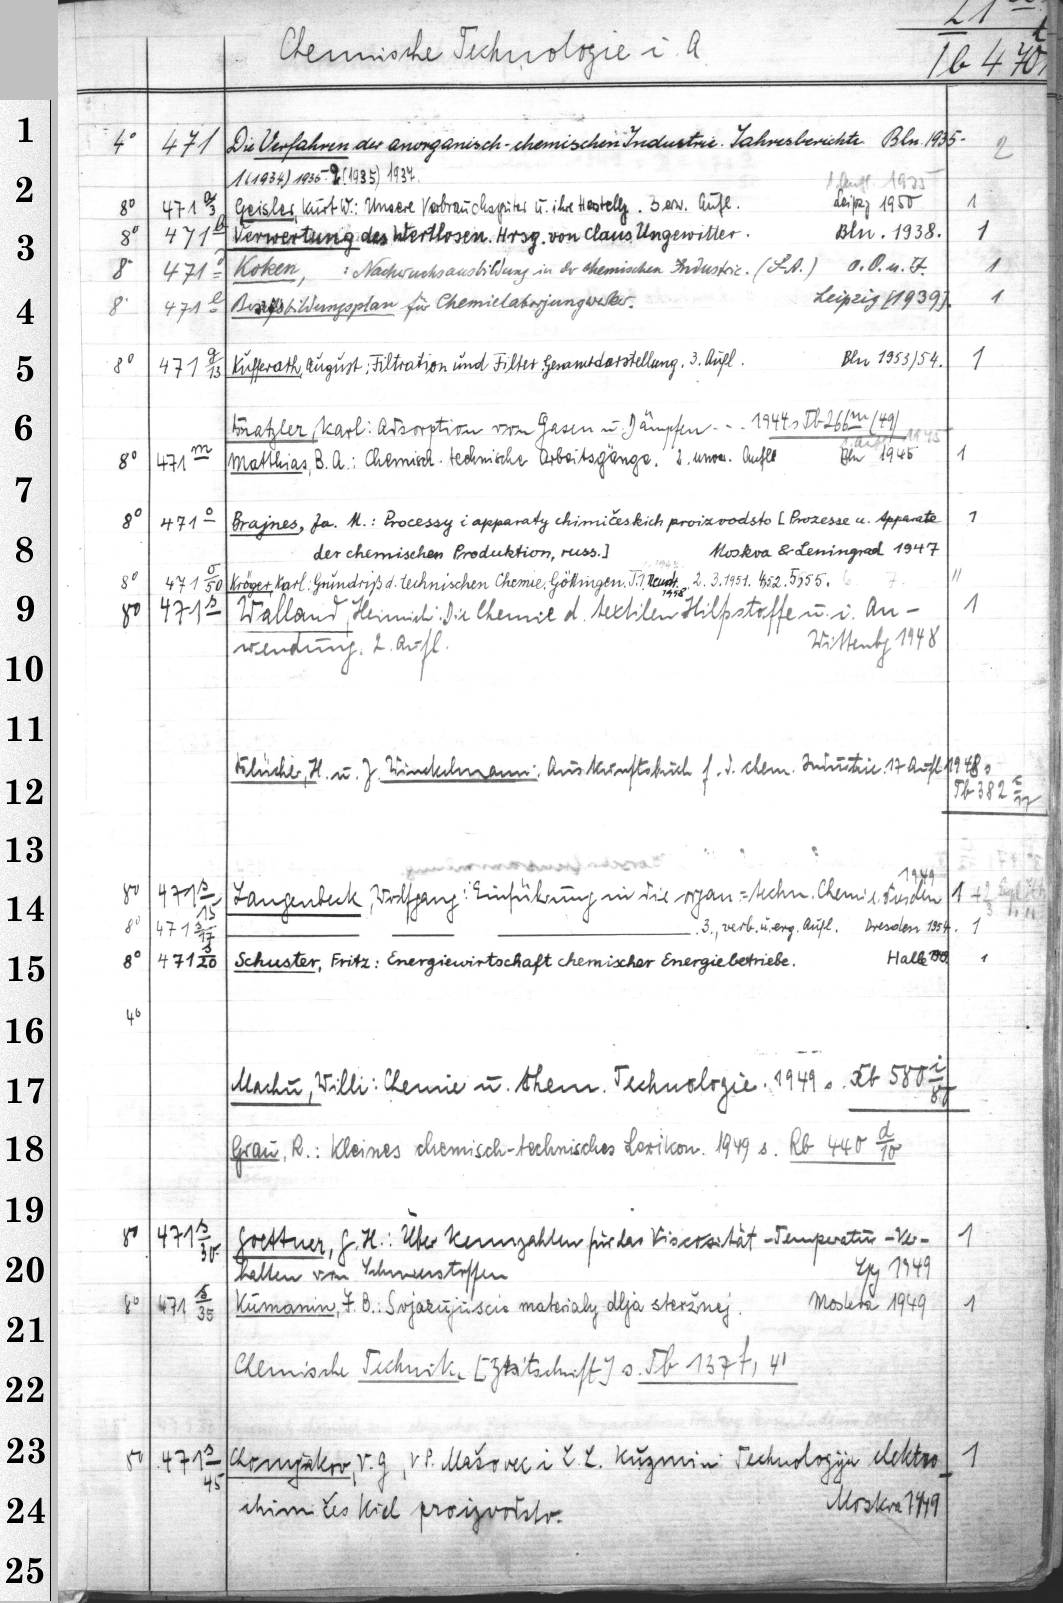 Chemische Technologie i. A
21
Ib 470
1
4° 471 Die Verfahren der anorganisch-chemischen Industrie. Jahresberichte Bln. 1935- 2
1(1934) 1935-2(1935) 1937.
2
1935
8° 471 a/3 Geisler, Kurt W.: Unsere Verbrauchsgüter u. ihre Herstellg. 3. erw. Aufl. Leipzg 1950 1
3
8° 471 b Verwertung des Wertlosen. Hrsg. von Claus Ungewitter. Bln. 1938. 1
8° 471 Koken, : Nachwuchsausbildung in der chemischen Industrie. (S.A.) o. O. u. J. 1
4
8° 471 e Berufsbildungsplan für Chemielaborjungwerker. Leipzig [1939]. 1
5
8° 471 g/13 Kufferath, August: Filtration und Filter. Gesamtdarstellung. 3. Aufl. Bln 1953/54. 1
6
Kratzler, Karl: Adsorption von Gasen u. Dämpfen - - . 1944 s Tb 266 m (49)
1945
8° 471 m Matthias, B. A.: Chemisch-technische Arbeitsgänge. 2. unver. Aufl. Bln 1945 1
7
8° 471 o Brajnes, Ja. M.: Processy i apparaty chimičeskich proizvodsto [Prozesse u. Apparate 1
8
der chemischen Produktion, russ.] Moskva & Leningrad 1947
8° 471 o/50 Kröger, Karl: Grundriß d. technischen Chemie. Göttingen. T. 1 Neudr. 1948 2. 3. 1951. 4, 52. 5, 55. 6 7. "
9
8° 471 s Walland, Heinrich: Die Chemie d. textilen Hilfsstoffe u. i. An- 1
wendung. 2. Aufl. Wittenbg 1948
10
11
Blücher, H. u. J. Winckelmann: Auskunftsbuch f. d. chem. Industrie. 17 Aufl. 1948 s
12
Tb 382
13
1949
8° 471 s/15 Langenbeck, Wolfgang: Einführung in die organ.-techn. Chemie. Dresden 1
14
8° 471 s/17 3., verb. u. erg. Aufl. Dresden 1954. 1
15
8° 471 s/20 Schuster, Fritz: Energiewirtschaft chemischer Energiebetriebe. Halle 1
16
4°
17
Machu, Willi: Chemie u. chem. Technologie. 1949 s. Xb 580 i/80
18
Grau, R.: Kleines chemisch-technisches Lexikon. 1949 s. Rb 440 d/10
19
8° 471 s/30 Goettner, G. H.: Über Kennzahlen für das Viscosität-Temperatur-Ver- 1
20
halten von Schmierstoffen Lpg 1949
8° 471 s/35 Kumanin, I. B.: Svjazujuščie materialy dlja steržnej. Moskva 1949 1
21
Chemische Technik. [Zeitschrift] s. Tb 137 f, 4°
22
23
8° 471 s/45 Chomjakov, V. G., V. P. Mašovec i L. L. Kuzmin: Technologija elektro- 1
24
chimičeskich proizvodstv. Moskva 1949
25